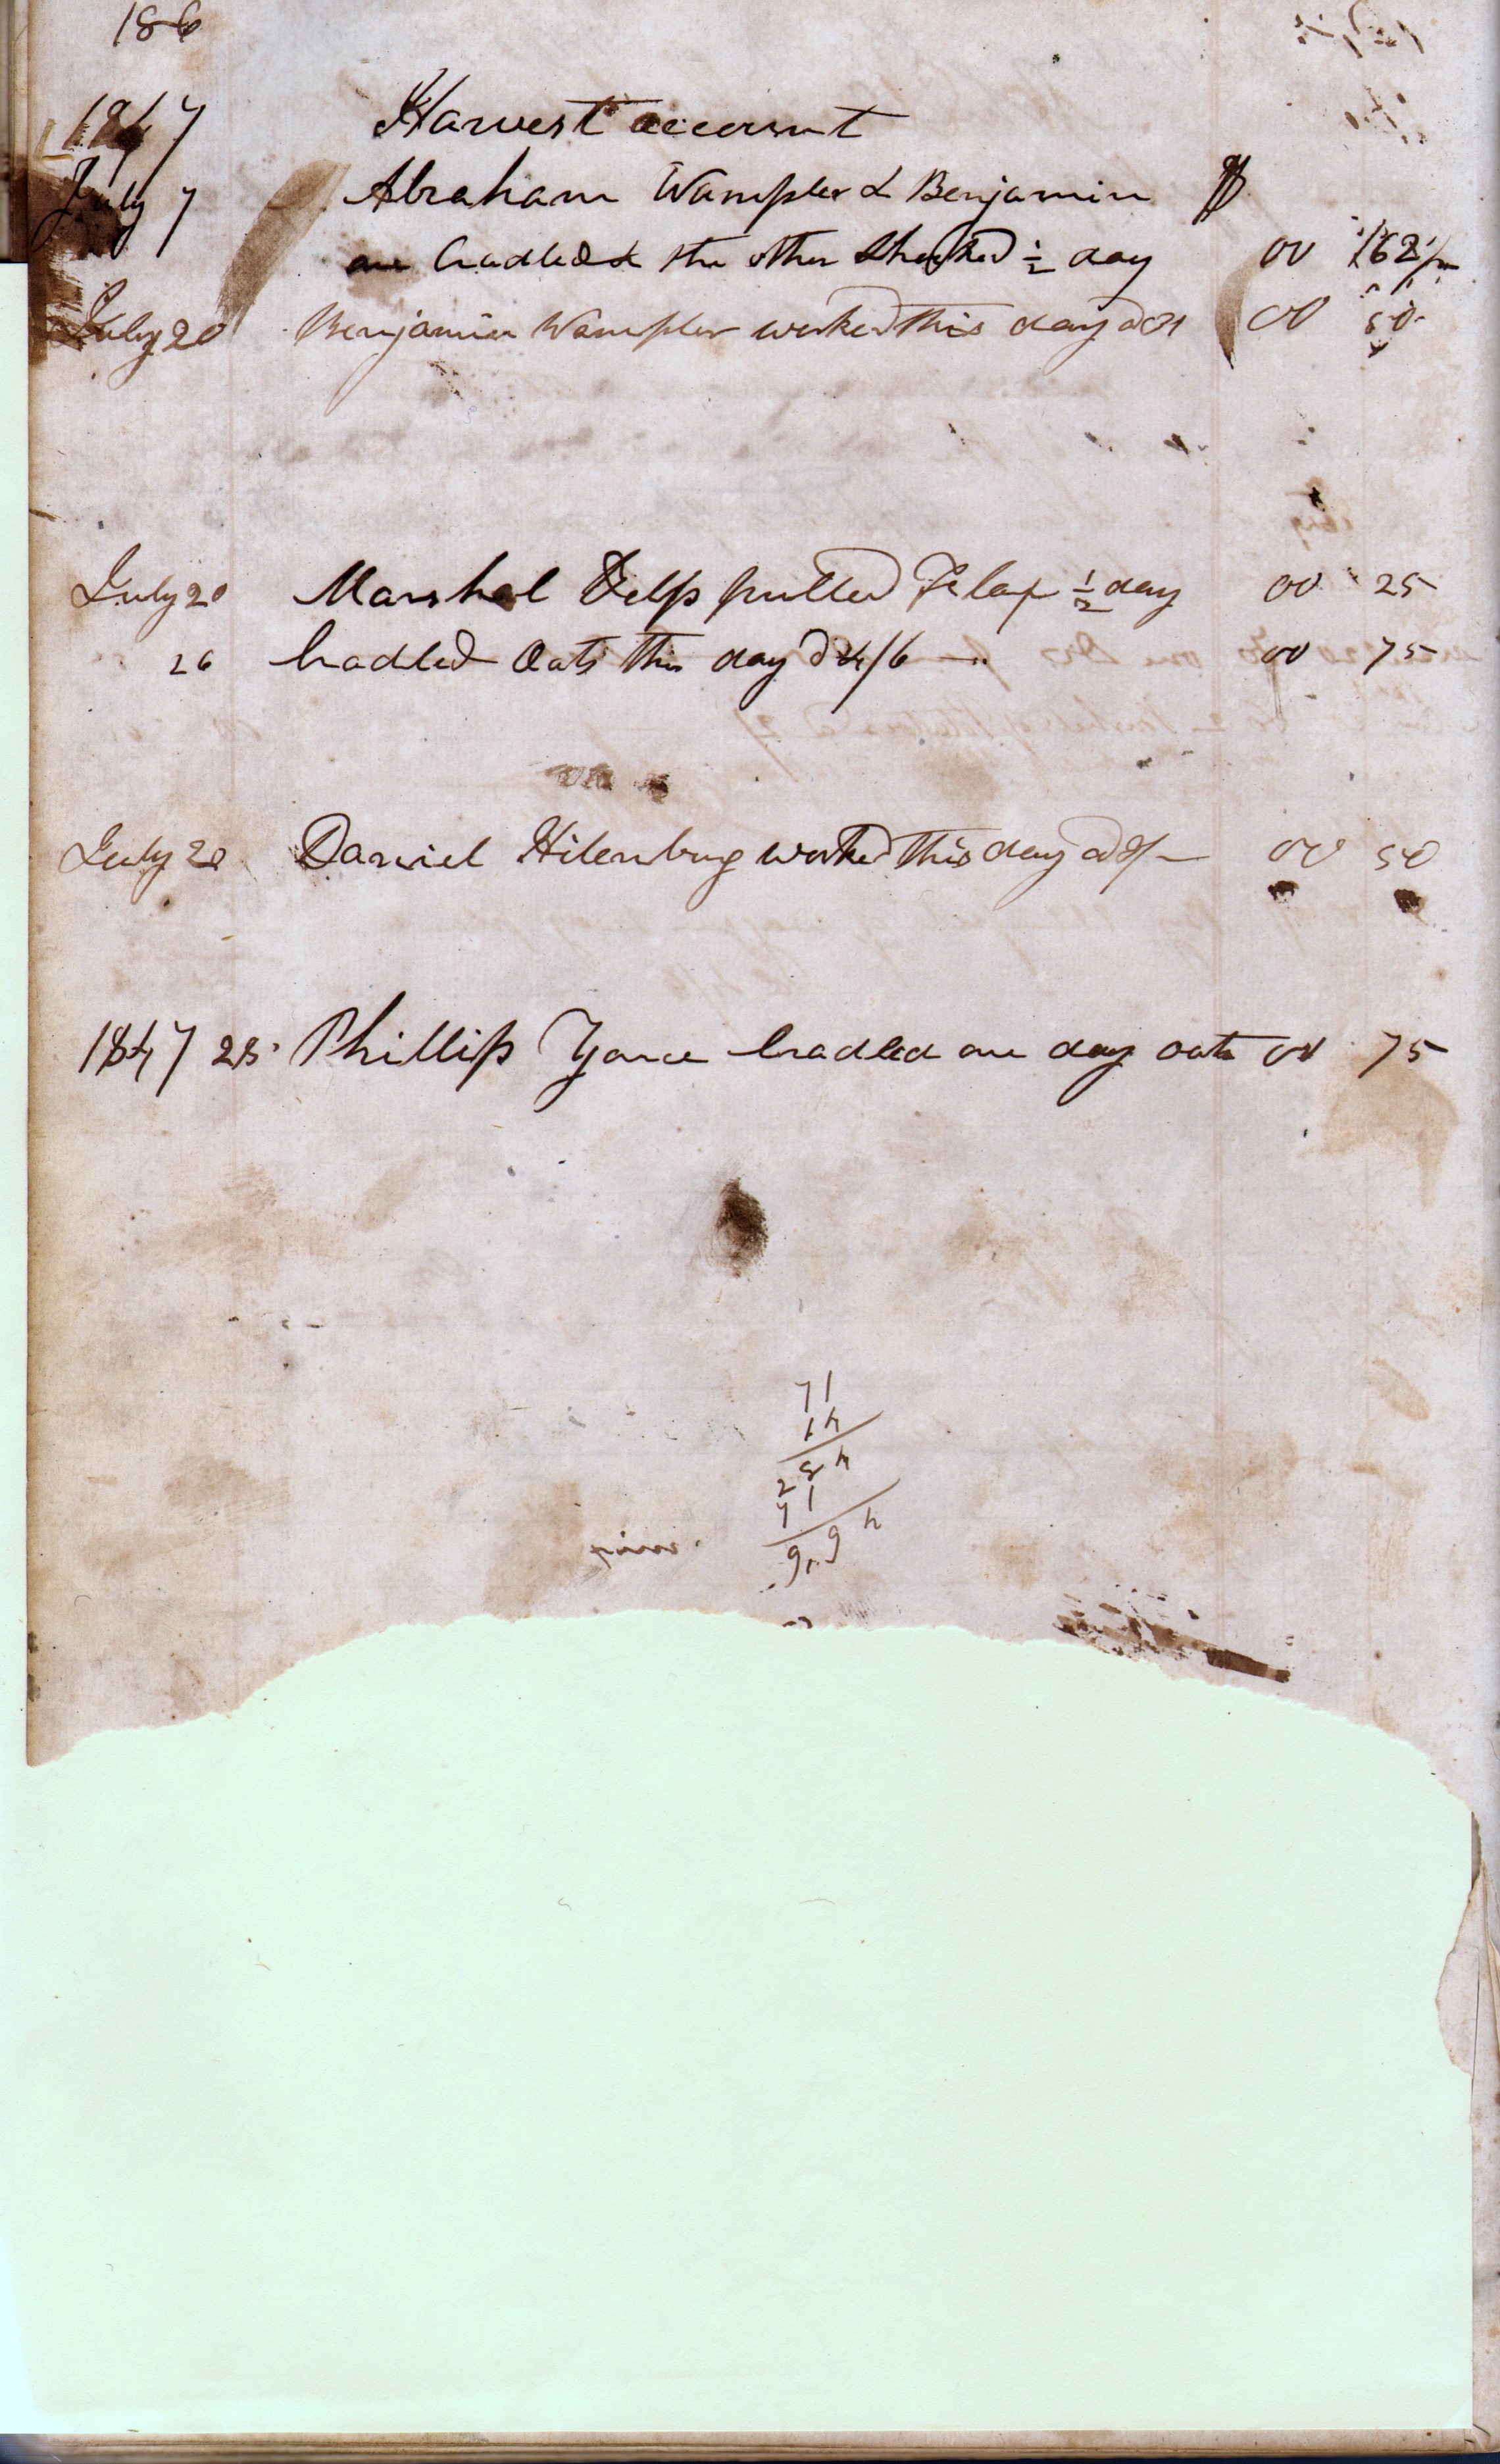 186
1847 Harvest account
July 7 Abraham Wampler & Benjamin
one Cradled & the other Shocked ½ day 00 62½
July 20 Benjamin Wampler worked this day @ 3/ 00 50
July 20 Marshal Delp pulled Flax ½ day 00 25
26 Cradled Oats this day @ 4/6 00 75
July 20 Daniel Hilenbug worked this day @ 3/ 00 50
1847 28 Phillip Yonce Cradled one day oats 00 75
71
14
284
71
994